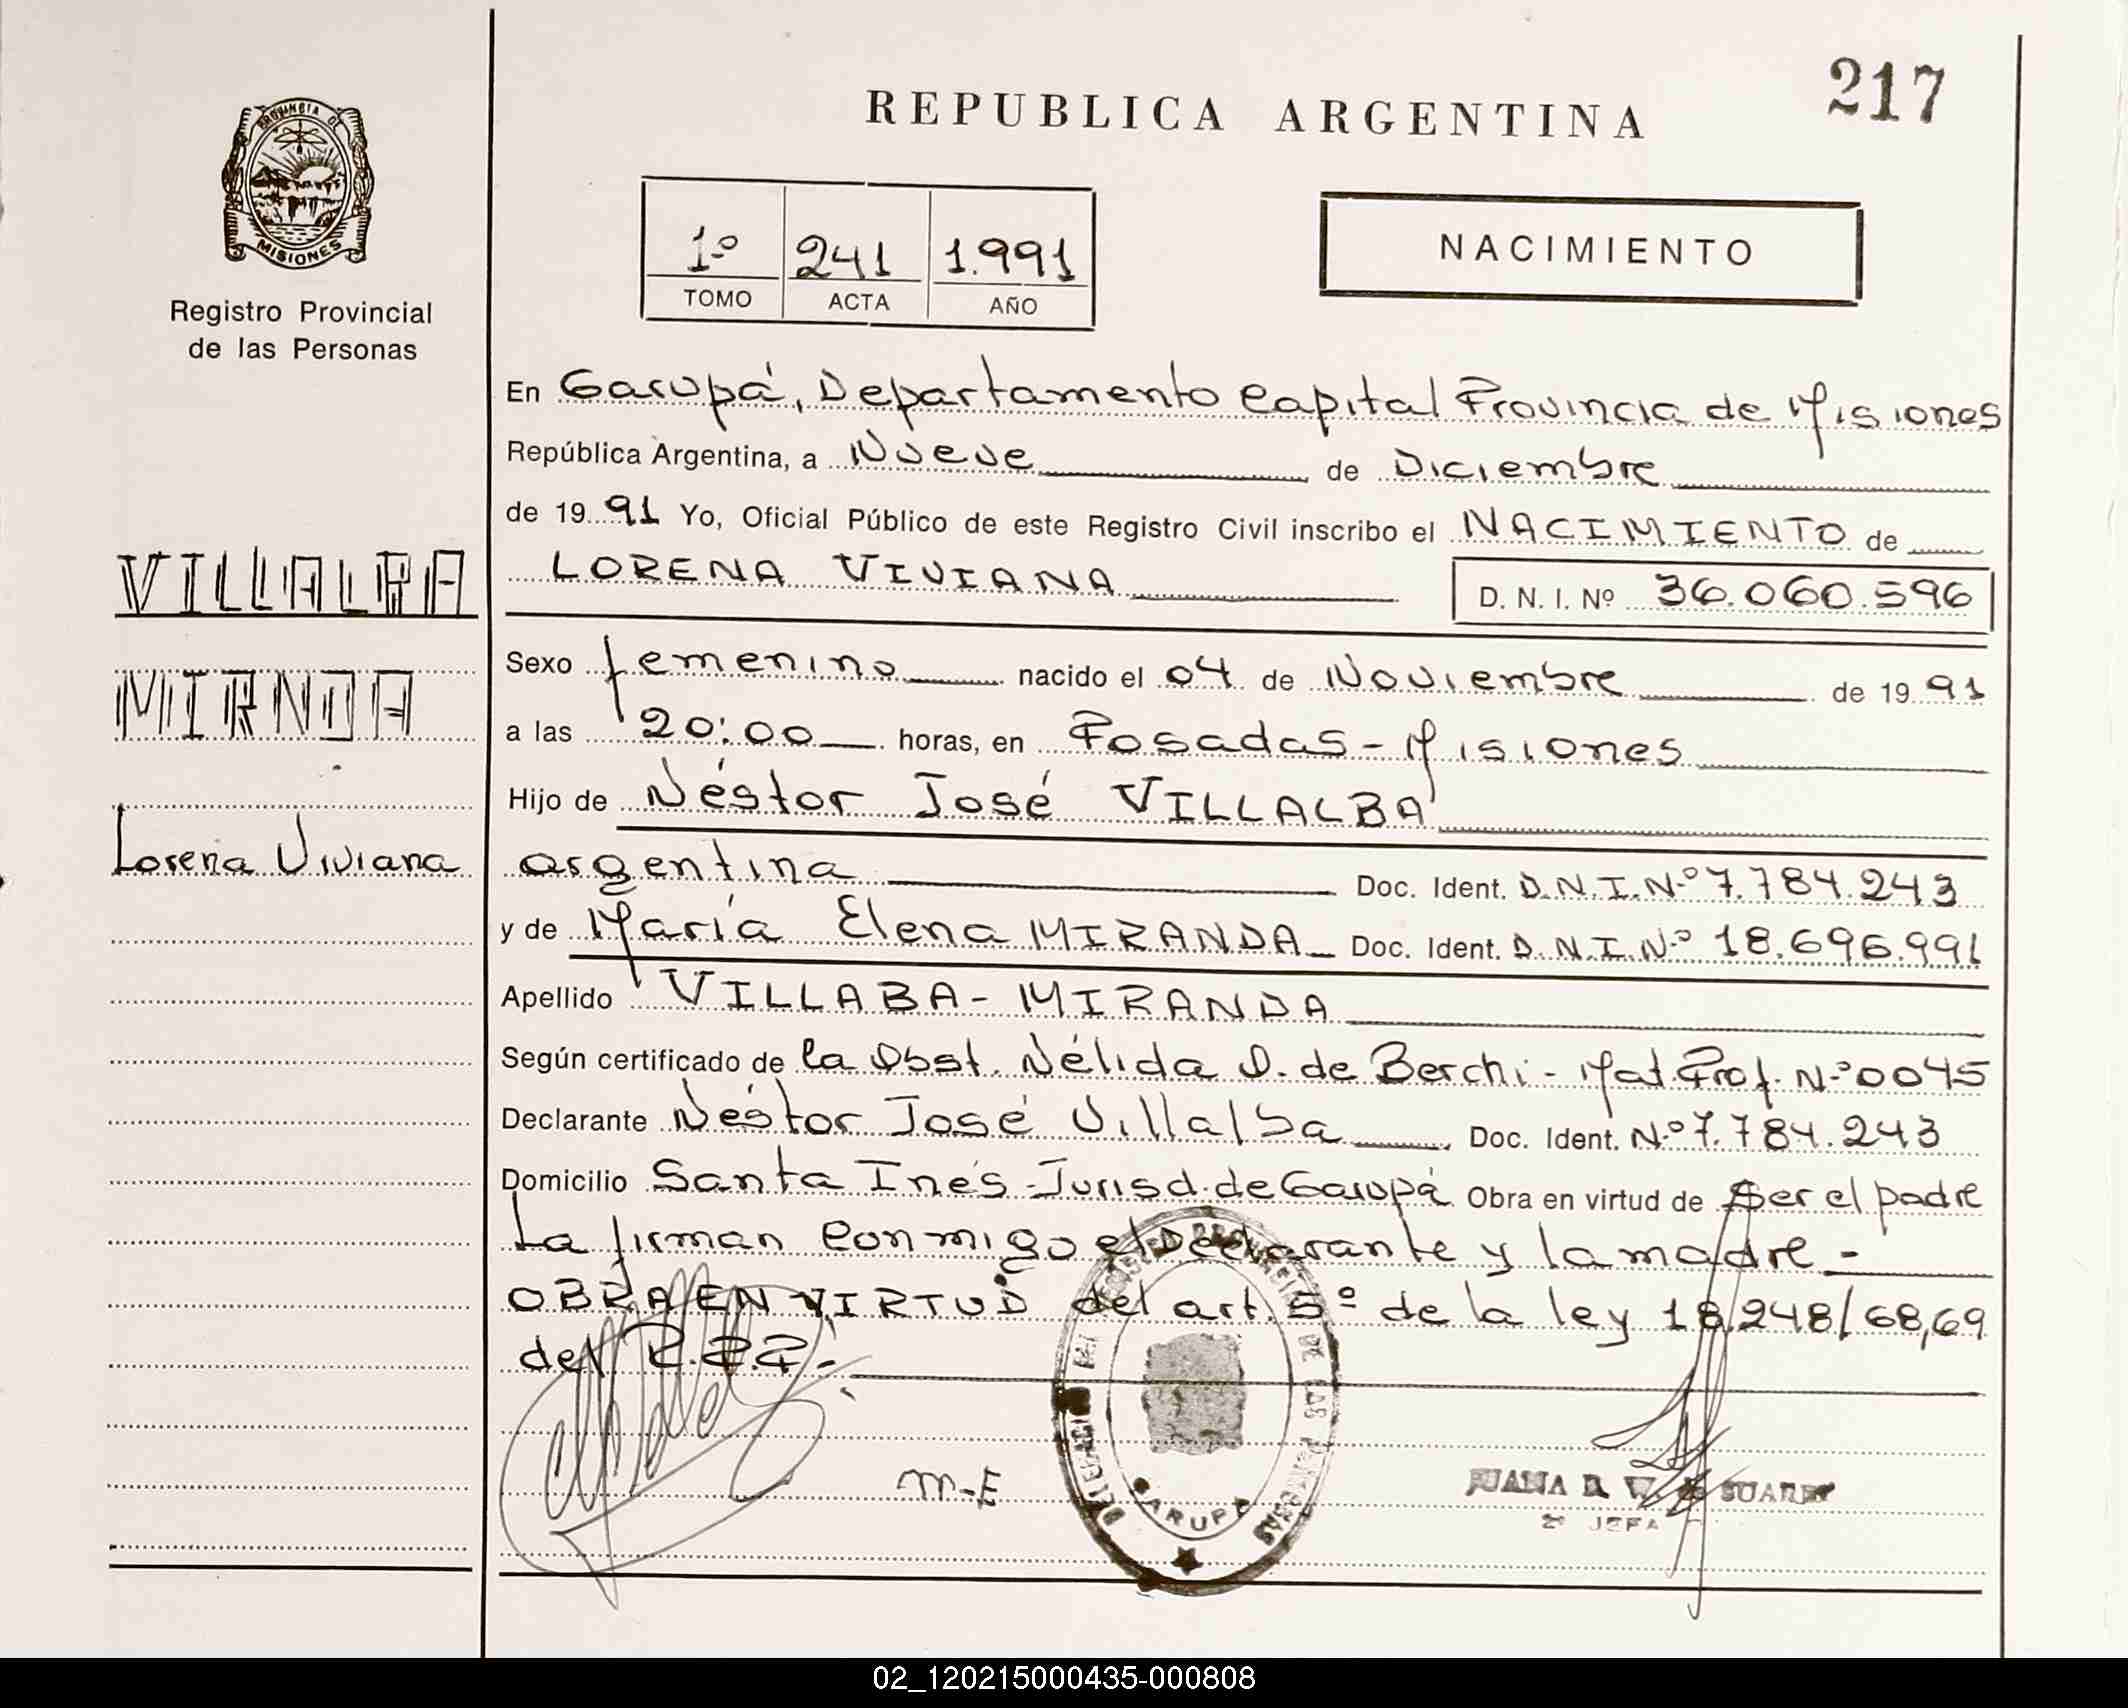 217
REPUBLICA ARGENTINA
PROVINCIA DE
MISIONES
Registro Provincial
de las Personas
1º 241 1.991
TOMO ACTA AÑO
NACIMIENTO
En Garupá, Departamento Capital Provincia de Misiones
República Argentina, a Nueve de Diciembre
de 1991 Yo, Oficial Público de este Registro Civil inscribo el NACIMIENTO de
LORENA VIVIANA D. N. I. Nº 36.060.596
VILLALBA
MIRNDA
Lorena Viviana
Sexo femenino nacido el 04 de Noviembre de 1991
a las 20:00 horas, en Posadas - Misiones
Hijo de Néstor José VILLALBA
argentina Doc. Ident. D.N.I.Nº 7.784.243
y de María Elena MIRANDA Doc. Ident. D.N.I.Nº 18.696.991
Apellido VILLABA - MIRANDA
Según certificado de la Obst. Nélida O. de Berchi - Mat. Prof. Nº 0045
Declarante Néstor José Villalba Doc. Ident. Nº 7.784.243
Domicilio Santa Inés - Jurisd. de Garupá Obra en virtud de Ser el padre
La firman conmigo el Declarante y la madre -
OBRA EN VIRTUD del art. 5º de la ley 18.248/68,69
del
M-E
DE LAS PERSONAS
GARUPA
JUANA R. W. DE SUAREZ
2º JEFA
02_120215000435-000808